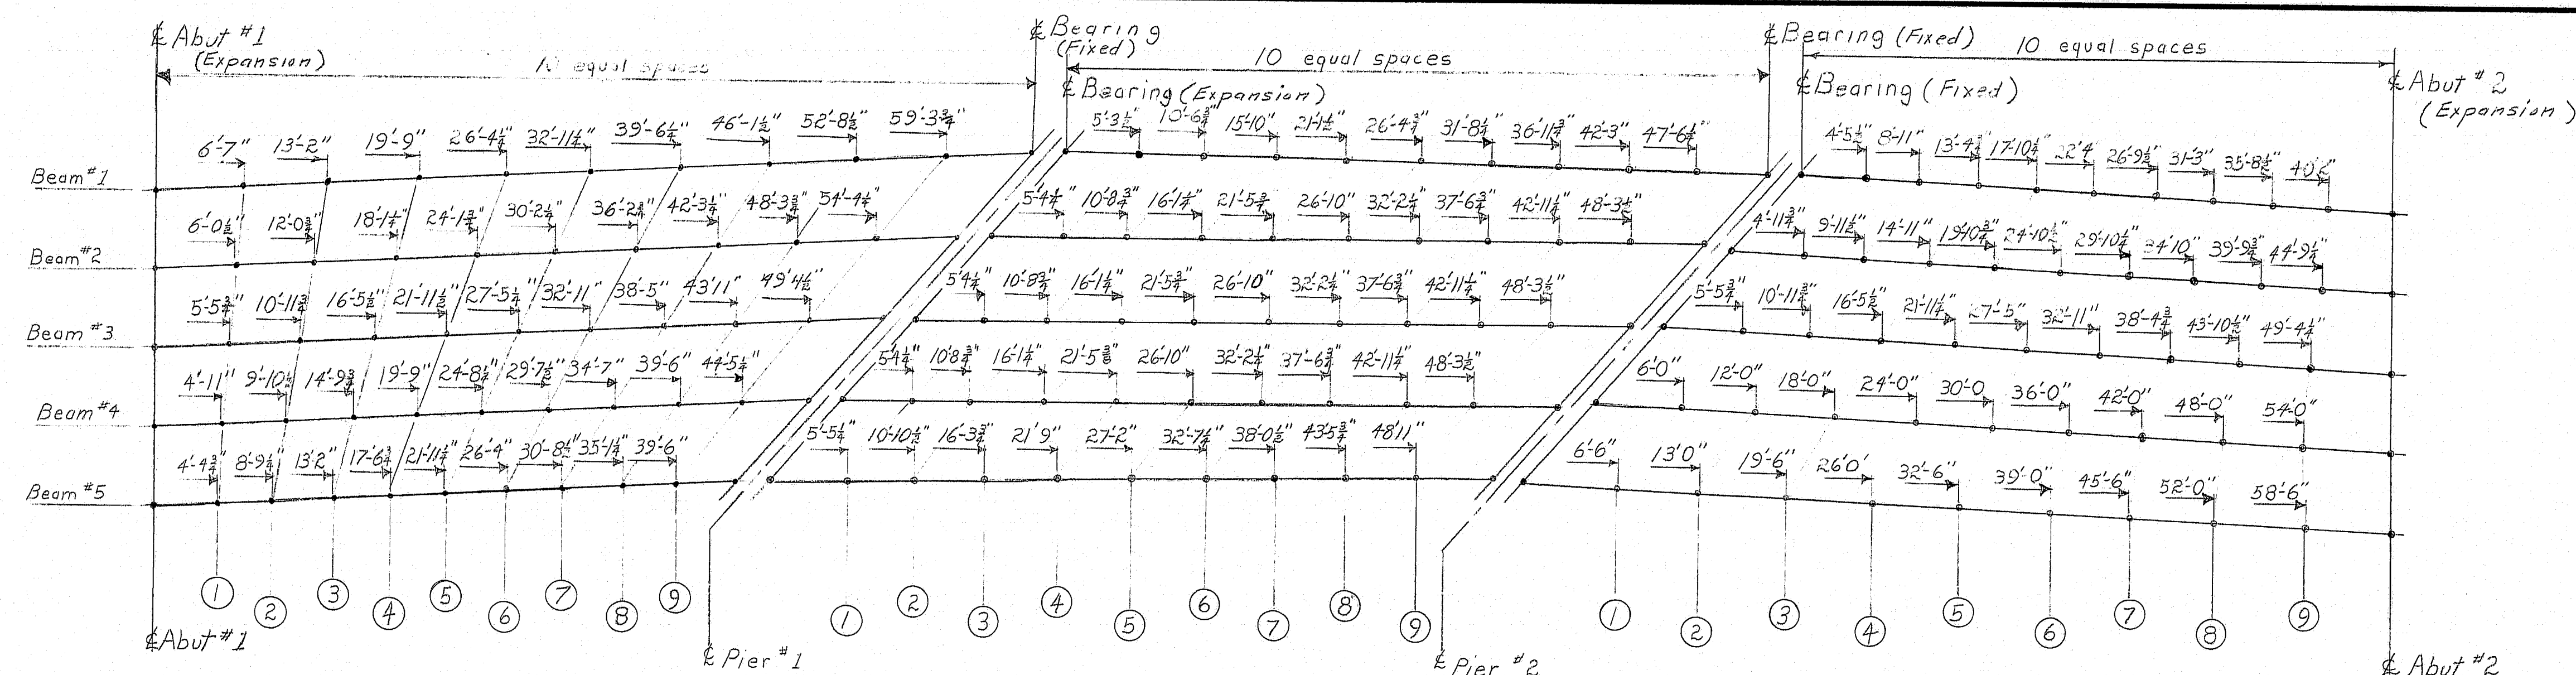 ℄ Abut #1
(Expansion)
10 equal spaces
℄ Bearing
(Fixed)
10 equal spaces
℄ Bearing (Expansion)
℄ Bearing (Fixed)
10 equal spaces
℄ Bearing (Fixed)
℄ Abut #2
(Expansion)
Beam #1
6'-7" 13'-2" 19'-9" 26'-4¼" 32'-11¼" 39'-6¼" 46'-1½" 52'-8½" 59'-3¾"
5'-3½" 10'-6¾" 15'-10" 21'-1½" 26'-4¾" 31'-8¼" 36'-11¾" 42'-3" 47'-6½"
4'-5½" 8'-11" 13'-4¾" 17'-10¼" 22'4" 26'-9½" 31'-3" 35'-8½" 40'2"
Beam #2
6'-0½" 12'-0¾" 18'-1¼" 24'-1¾" 30'-2¼" 36'-2¾" 42'-3¼" 48'-3¾" 54'-4¼"
5'-4¼" 10'-8¾" 16'-1¼" 21'-5¾" 26'-10" 32'-2¼" 37'-6¾" 42'-11¼" 48'-3½"
4'-11¾" 9'-11½" 14'-11" 19'-10¾" 24'-10½" 29'-10¼" 34'10" 39'-9¾" 44'-9½"
Beam #3
5'-5¾" 10'-11¾" 16'-5½" 21'-11½" 27'-5¼" 32'-11" 38'-5" 43'11" 49'4½"
5'4¼" 10'-8¾" 16'-1¼" 21'-5¾" 26'-10" 32'-2¼" 37'-6¾" 42'-11¼" 48'-3½"
5'-5¾" 10'-11¾" 16'-5½" 21'-11¼" 27'-5" 32'-11" 38'-4¾" 43'-10½" 49'-4¼"
Beam #4
4'-11" 9'-10½" 14'-9¾" 19'-9" 24'-8¼" 29'-7½" 34'-7" 39'-6" 44'-5¼"
5'4¼" 10'8¾" 16'-1¼" 21'-5¾" 26'-10" 32'-2¼" 37'-6¾" 42'-11¼" 48'-3½"
6'-0" 12'-0" 18'-0" 24'-0" 30'-0 36'-0" 42'-0" 48'-0" 54'-0"
Beam #5
4'-4¾" 8'-9¼" 13'-2" 17'-6¾" 21'-11¼" 26'-4" 30'-8½" 35'-1¼" 39'-6"
5'-5¼" 10'-10½" 16'-3¾" 21'9" 27'-2" 32'-7¼" 38'-0½" 43'5¾" 48'11"
6'-6" 13'0" 19'-6" 26'0' 32'-6" 39'-0" 45'-6" 52'-0" 58'-6"
1 2 3 4 5 6 7 8 9
1 2 3 4 5 6 7 8 9
1 2 3 4 5 6 7 8 9
℄ Abut #1
℄ Pier #1
℄ Pier #2
℄ Abut #2